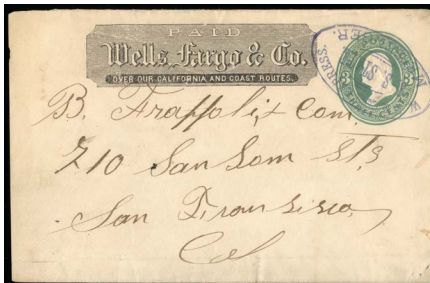 PAID
Wells, Fargo & Co.
OVER OUR CALIFORNIA AND COAST ROUTES.
B. Frapolli & Com.
710 San Som St s
San Francisco,
Cal